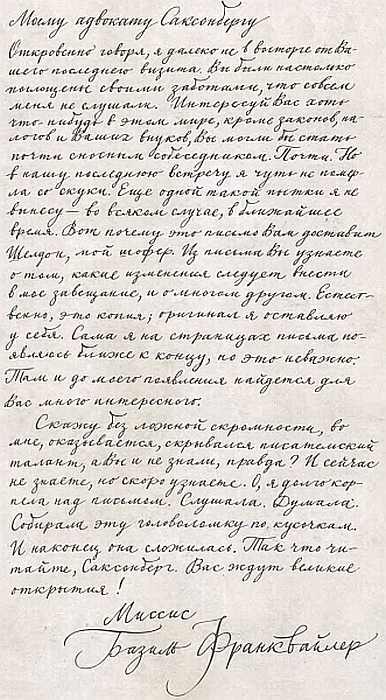 Моему адвокату Саксонбергу
Откровенно говоря, я далеко не в восторге от Ва-
шего последнего визита. Вы были настолько
поглощены своими заботами, что совсем
меня не слушали. Интересуй Вас хоть
что-нибудь в этом мире, кроме законов, на-
логов и Ваших внуков, Вы могли бы стать
почти сносным собеседником. Почти. Но
в нашу последнюю встречу я чуть не помер-
ла со скуки. Еще одной такой пытки я не
вынесу — во всяком случае, в ближайшее
время. Вот почему это письмо Вам доставит
Шелдон, мой шофер. Из письма Вы узнаете
о том, какие изменения следует внести
в мое завещание, и о многом другом. Естест-
венно, это копия; оригинал я оставляю
у себя. Сама я на страницах письма по-
являюсь ближе к концу, но это неважно.
Там и до моего появления найдется для
Вас много интересного.
Скажу без ложной скромности, во
мне, оказывается, скрывался писательский
талант, а Вы и не знали, правда? И сейчас
не знаете, но скоро узнаете. О, я долго кор-
пела над письмом. Слушала. Думала.
Собирала эту головоломку по кусочкам.
И наконец она сложилась. Так что чи-
тайте, Саксонберг. Вас ждут великие
открытия!
Миссис
Базиль Франквайлер